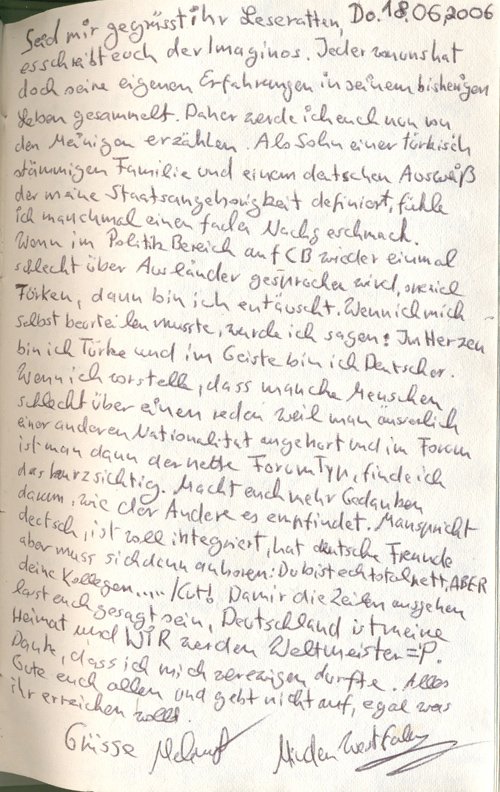 Do. 18.06.2006
Seid mir gegrüsst ihr Leseratten,
es schreibt euch der Imaginos. Jeder von uns hat
doch seine eigenen Erfahrungen in seinem bisherigen
Leben gesammelt. Daher werde ich euch nun von
den Meinigen erzählen. Als Sohn einer türkisch
stämmigen Familie und einem deutschen Ausweiß
der meine Staatsangehörigkeit definiert, fühle
ich manchmal einen faden Nachgeschmack.
Wenn im Politik Bereich auf CB wieder einmal
schlecht über Ausländer gesprochen wird, speziell
Türken, dann bin ich entäuscht. Wenn ich mich
selbst beurteilen müsste, würde ich sagen: Im Herzen
bin ich Türke und im Geiste bin ich Deutscher.
Wenn ich vorstelle, dass manche Menschen
schlecht über einen reden weil man äusserlich
einer anderen Nationalität angehört und im Forum
ist man dann der nette ForumTyp, finde ich
das kurzsichtig. Macht euch mehr Gedanken
darum, wie der Andere es empfindet. Man spricht
deutsch, ist voll integriert, hat deutsche Freunde
aber muss sich dann anhören: Du bist echt total nett, ABER
deine Kollegen..... /Cut! Da mir die Zeilen ausgehen
lasst euch gesagt sein, Deutschland ist meine
Heimat und WIR werden Weltmeister =P.
Danke, dass ich mich verewigen durfte. Alles
Gute euch allen und gebt nicht auf, egal was
ihr erreichen wollt.
Grüsse Minden Westfalen